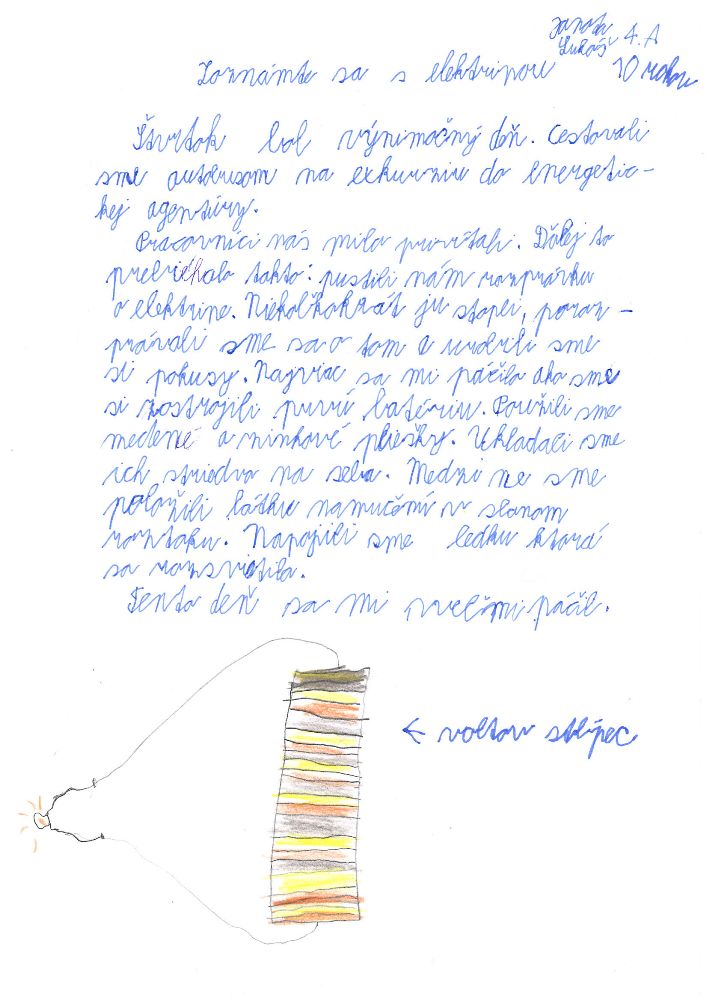 Janota
Lukáš 4. A
10 rokov
Zoznámte sa s elektrinou
Štvrtok bol výnimočný deň. Cestovali
sme autobusom na exkurziu do Energetic-
kej agentúry.
Pracovníci nás milo privítali. Ďalej to
prebiehalo takto: pustili nám rozprávku
o elektrine. Niekoľkokrát ju stopli, poroz-
právali sme sa o tom a urobili sme
si pokusy. Najviac sa mi páčilo ako sme
si zostrojili prvú batériu. Použili sme
medené a zinkové pliešky. Ukladali sme
ich striedvo na seba. Medzi ne sme
položili látku namočenú v slanom
roztoku. Napojili sme ledku ktorá
sa rozsvietila.
Tento deň sa mi veľmi páčil.
← voltov stĺpec